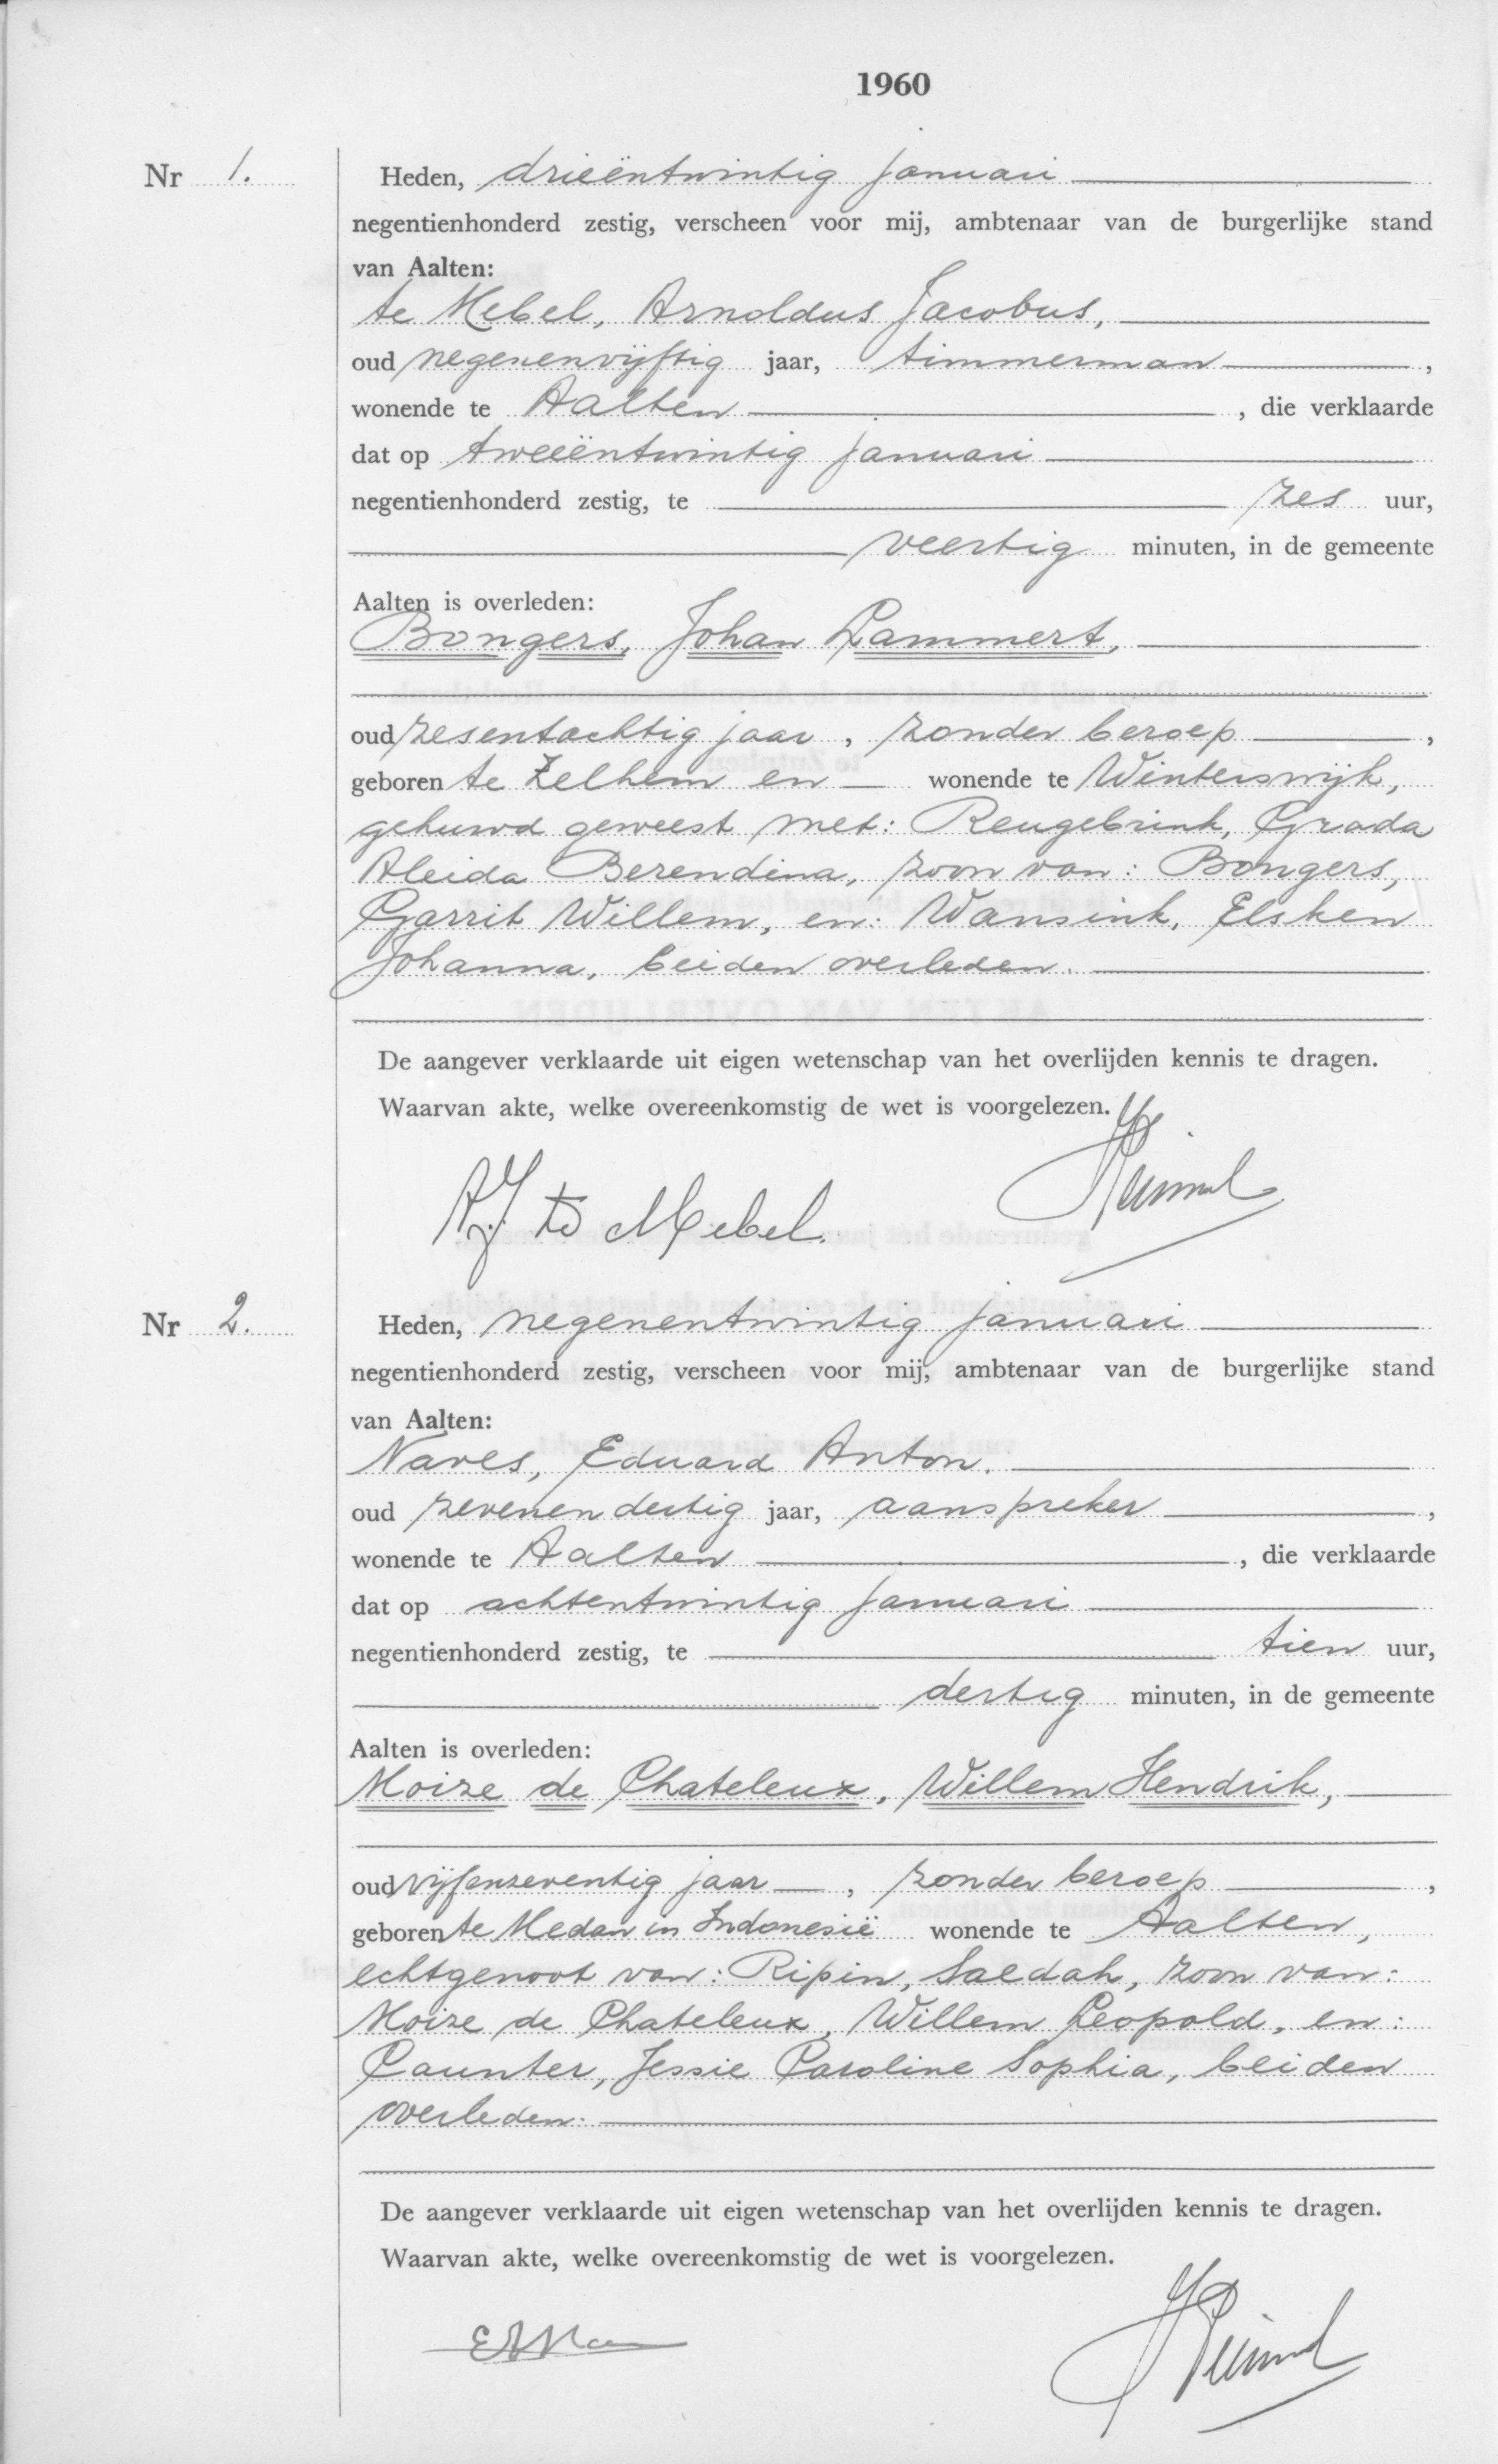 1960
Nr 1.
Heden, drieëntwintig januari
negentienhonderd zestig, verscheen voor mij, ambtenaar van de burgerlijke stand
van Aalten:
te Mebel, Arnoldus Jacobus,
oud negenenvijftig jaar, timmerman,
wonende te Aalten, die verklaarde
dat op tweeëntwintig januari
negentienhonderd zestig, te zes uur,
veertig minuten, in de gemeente
Aalten is overleden:
Bongers, Johan Lammert,
oud zesentachtig jaar, zonder beroep,
geboren te Zelhem en wonende te Winterswijk,
gehuwd geweest met: Reugebrink, Grada
Aleida Berendina, zoon van: Bongers,
Garrit Willem, en: Wansink, Elsken
Johanna, beiden overleden.
De aangever verklaarde uit eigen wetenschap van het overlijden kennis te dragen.
Waarvan akte, welke overeenkomstig de wet is voorgelezen.
A.J. te Mebel.
Nr 2.
Heden, negenentwintig januari
negentienhonderd zestig, verscheen voor mij, ambtenaar van de burgerlijke stand
van Aalten:
Naves, Eduard Anton.
oud zevenendertig jaar, aanspreker,
wonende te Aalten, die verklaarde
dat op achtentwintig januari
negentienhonderd zestig, te tien uur,
dertig minuten, in de gemeente
Aalten is overleden:
Moize de Chateleux, Willem Hendrik,
oud vijfenzeventig jaar, zonder beroep,
geboren te Medan in Indonesië wonende te Aalten,
echtgenoot van: Ripin, Saedah, zoon van:
Moize de Chateleux, Willem Leopold, en:
Caunter, Jessie Caroline Sophia, beiden
overleden.
De aangever verklaarde uit eigen wetenschap van het overlijden kennis te dragen.
Waarvan akte, welke overeenkomstig de wet is voorgelezen.